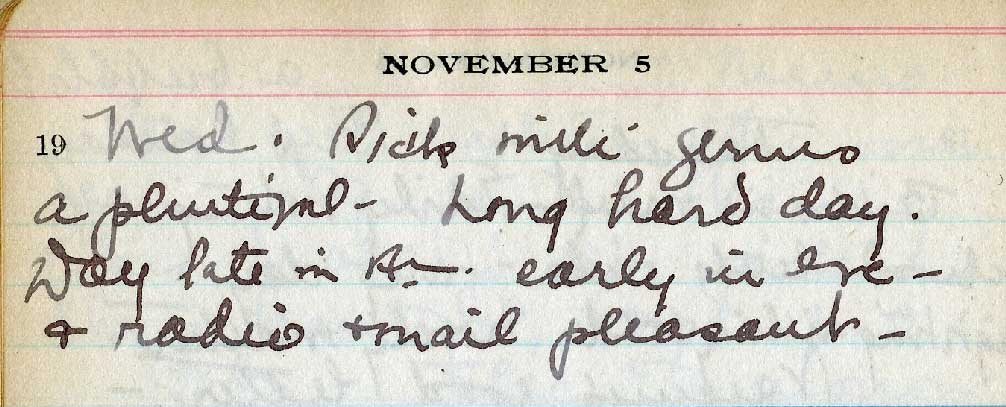 NOVEMBER 5
19 Wed. Sick with germs
a plentiful - Long hard day.
Way late in A.M. early in eve -
& radio & mail pleasant -